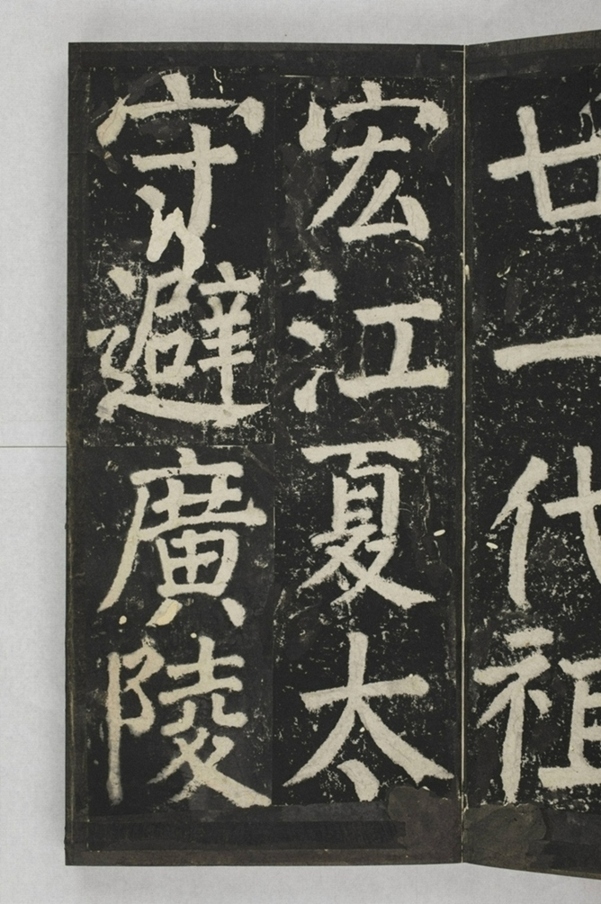 廿一代祖
宏江夏太
守避廣陵